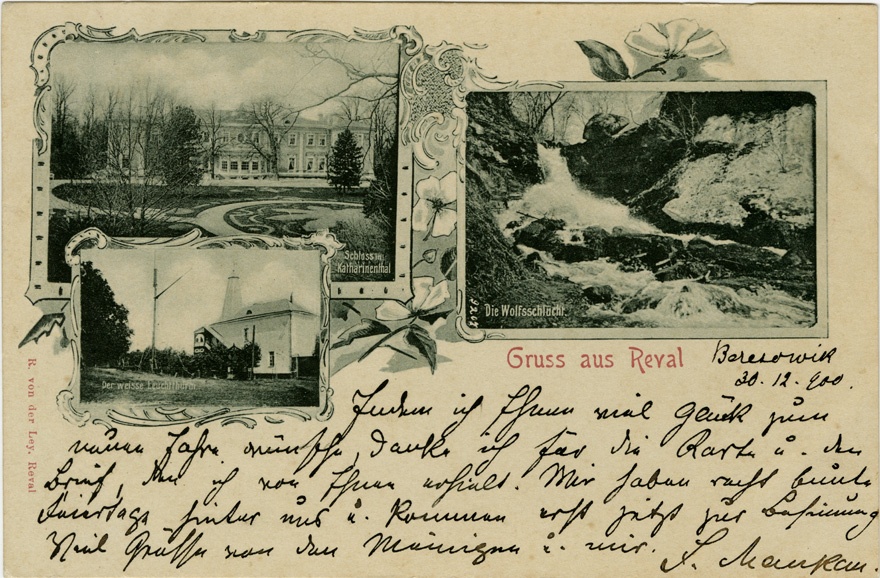 Schloss in
Katharinenthal
Der weisse Leuchtthurm
Die Wolfsschlucht.
9267
Gruss aus Reval
R. von der Ley. Reval
Beresowik
30.12.900.
Indem ich Ihnen viel Glück zum
neuen Jahre wünsche, danke ich für die Karte u. den
Brief, den ich von Ihnen erhielt. Wir haben recht bunte
Feiertage hinter uns u. kommen erst jetzt zur Besinnung
Viel Grüsse von den Meinigen u. mir.